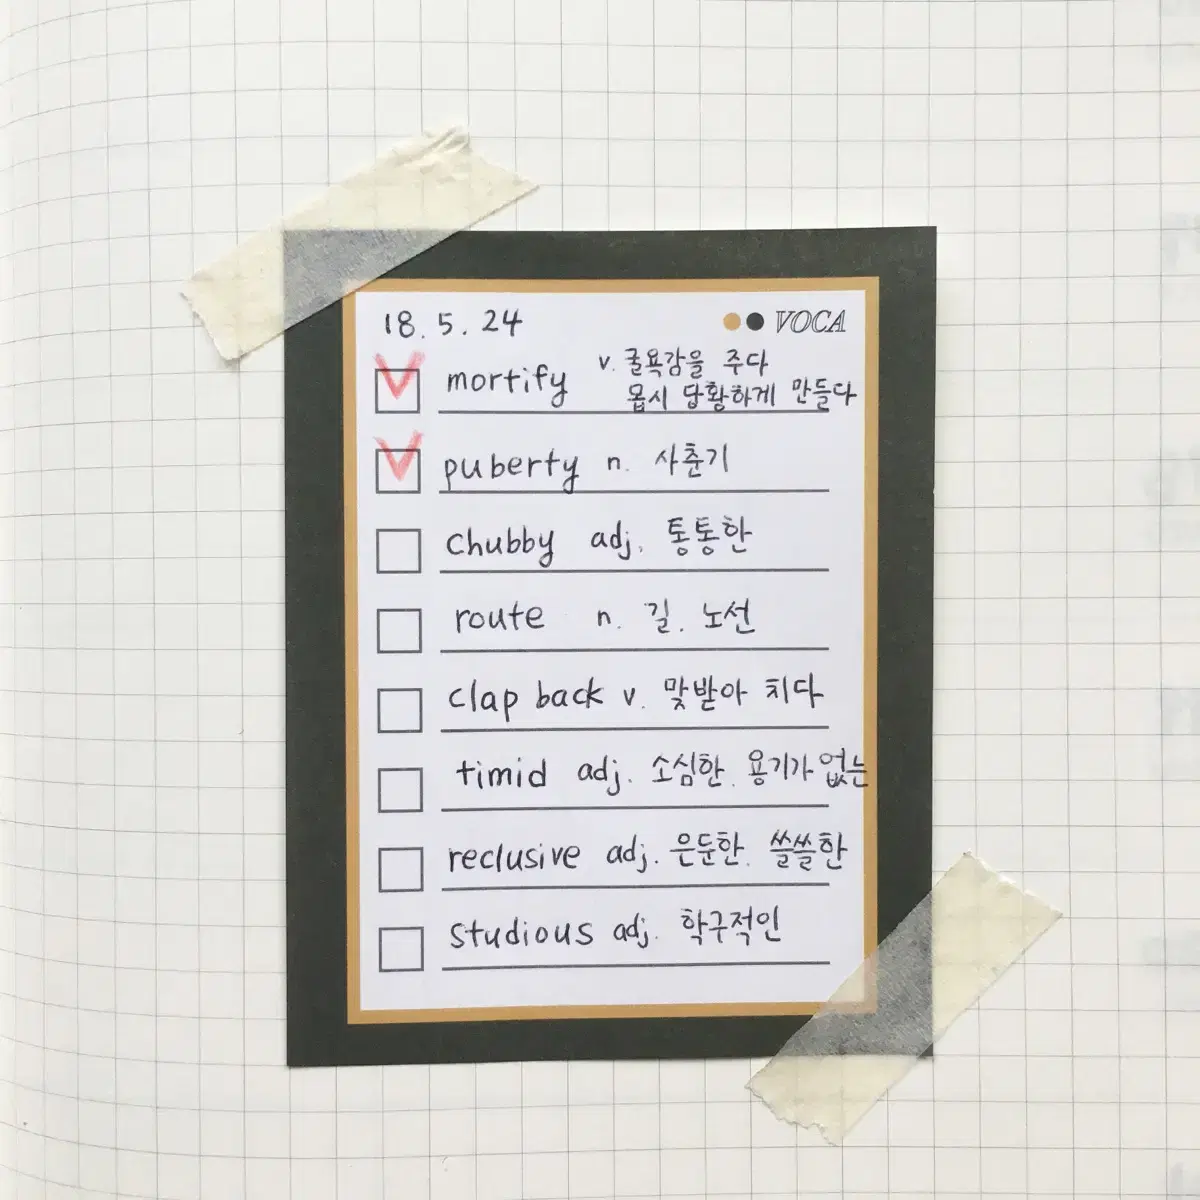 18. 5. 24 VOCA
mortify v. 굴욕감을 주다
몹시 당황하게 만들다
puberty n. 사춘기
chubby adj. 통통한
route n. 길. 노선
clap back v. 맞받아 치다
timid adj. 소심한. 용기가 없는
reclusive adj. 은둔한. 쓸쓸한
studious adj. 학구적인